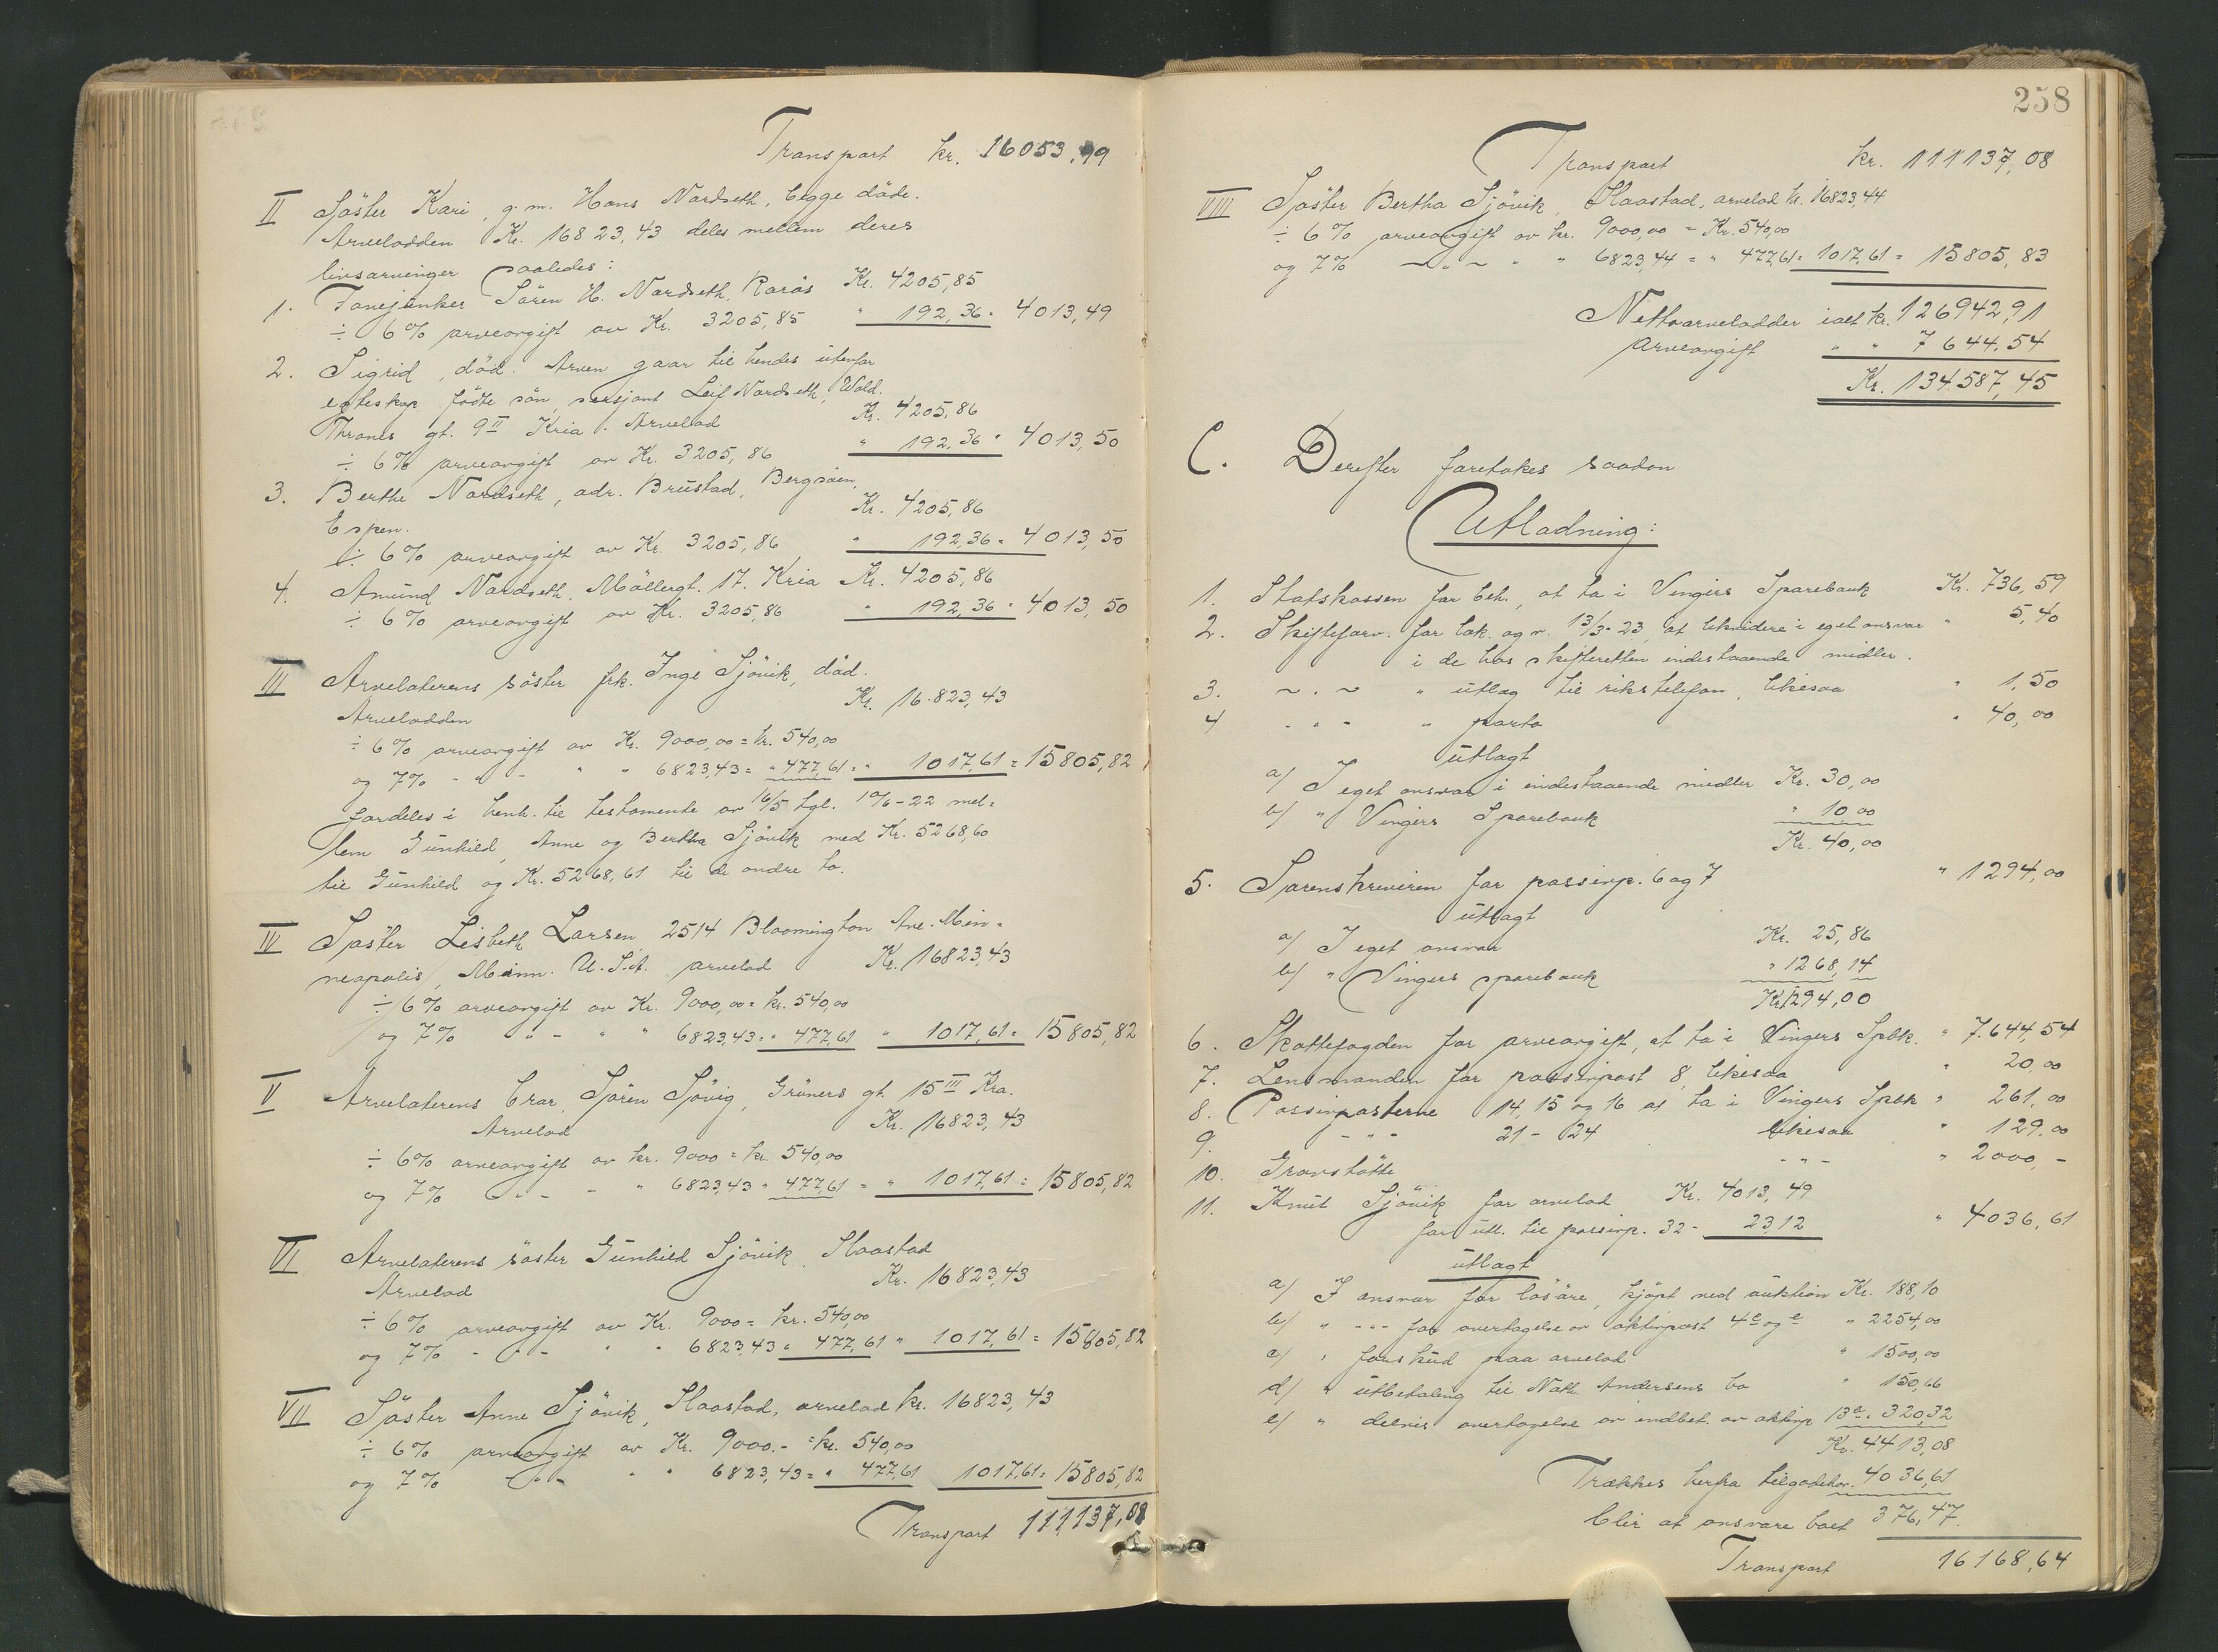 Transport kr. 16053.99
II Søster Kari, g. m. Hans Nordseth, begge døde.
Arvelodden Kr. 16823,43 deles mellem deres
livsarvinger saaledes:
1. Fanejunker Søren H. Nordseth, Røros Kr. 4205,85
÷ 6% arveavgift av Kr. 3205,85 " 192,36 = 4013,49
2. Sigrid, død. Arven gaar til hendes utenfor
egteskap fødte søn, sersjant Leif Nordseth, Wold.
Thranes gt. 9II Kria. Arvelod Kr. 4205,86
÷ 6% arveavgift av Kr. 3205,86 " 192,36 = 4013,50
3. Berthe Nordseth, adr. Brustad, Bergsäen,
Espen. Kr. 4205,86
÷ 6% arveavgift av Kr. 3205,86 " 192,36 = 4013,50
4. Amund Nordseth, Møllergt. 17. Kria Kr. 4205,86
÷ 6% arveavgift av Kr. 3205,86 " 192,36 = 4013,50
III Arvelaterens søster frk. Inge Sjøvik, død.
Arvelodden Kr. 16.823,43
÷ 6% arveavgift av Kr. 9000,00 = kr. 540,00
og 7% - " - " " 6823,43 = " 477,61 = " 1017,61 = 15805,82
fordeles i henh. til testamente av 16/5 tgl. 10/6-22 mel=
lem Gunhild, Anne og Bertha Sjøvik med Kr. 5268,60
til Gunhild og Kr. 5268,61 til de andre to.
IV Søster Lisbeth Larsen, 2514 Bloomington Ave. Min=
neapolis, Minn. U.S.A. arvelod Kr. 16823,43
÷ 6% arveavgift av Kr. 9000,00 = kr. 540,00
og 7% " - " " 6823,43 = " 477,61 " 1017,61 = 15805,82
V Arvelaterens bror, Søren Sjövig, Grüners gt. 15III Kra.
Arvelod Kr. 16823,43
÷ 6% arveavgift av kr. 9000 = kr. 540,00
og 7% " - - " 6823,43 " 477,61 = " 1017,61 = 15805,82
VI Arvelaterens søster Gunhild Sjøvik, Slaastad
Arvelod Kr. 16823,43
÷ 6% arveavgift av Kr. 9000 = kr. 540,00
og 7% - " - " " 6823,43 = 477,61 " 1017,61 = 15805,82
VII Søster Anne Sjøvik, Slaastad, arvelod kr. 16823,43
÷ 6% arveavgift av Kr. 9000.- = kr. 540,00
og 7% " - " " 6823,43 = " 477,61 1017,61 = 15805,82
Transport 111137,08
258
Transport kr. 111137,08
VIII Søster Bertha Sjøvik, Slaastad, arvelod kr. 16823,44
÷ 6% arveavgift av kr. 9000,00 = Kr. 540,00
og 7% ~ " ~ " " 6823,44 = " 477,61 = 1017,61 = 15805,83
Nettoarvelodder ialt kr. 126942,91
Arveavgift " " 7644,54
Kr. 134587,45
C. Derefter foretokes saadan
Utlodning:
1. Statskassen for beh., at ta i Vingers Sparebank Kr. 736,59
2. Skifteforv. for lok. og r. 13/3-23, at likvidere i eget ansvar " 5,40
i de hos skifteretten indestaaende midler.
3. ~ " ~ " utlæg til rikstelefon, likesaa " 1,50
4 - " - " porto " 40,00
utlagt
a/ I eget ansvar i indestaaende midler Kr. 30,00
b/ " Vingers Sparebank " 10,00
Kr. 40,00
5. Sorenskriveren for passivp. 6 og 7 " 1294,00
utlagt
a/ I eget ansvar Kr. 25,86
b/ " Vingers sparebank " 1268,14
Kr. 1294,00
6. Skattefogden for arveavgift, at ta i Vingers Spbk. " 7.644,54
7. Lensmanden for passivpost 8, likesaa " 20,00
8. Passivposterne 14, 15 og 16 at ta i Vingers Spbk " 261,00
9. - " - 21 - 24 likesaa " 129,00
10. Gravstøtte - " - " 2000,-
11. Knut Sjøvik for arvelod Kr. 4013,49
for utl. til passivp. 32 - 23,12 " 4036,61
utlagt
a/ I ansvar for løsøre, kjøpt ved auktion Kr. 188,10
b/ " - " - for overtagelse av aktivpost 4c og e " 2254,00
c/ " forskud paa arvelod " 1500,00
d/ " utbetaling til Nath. Andersens bo " 150,66
e/ " delvis overtagelse av indbet. av aktivp 13a. 320,32
Kr. 4413,08
Trækkes herfra tilgodehav. 4036,61
blir at ansvare boet 376,47.
Transport 16168,64